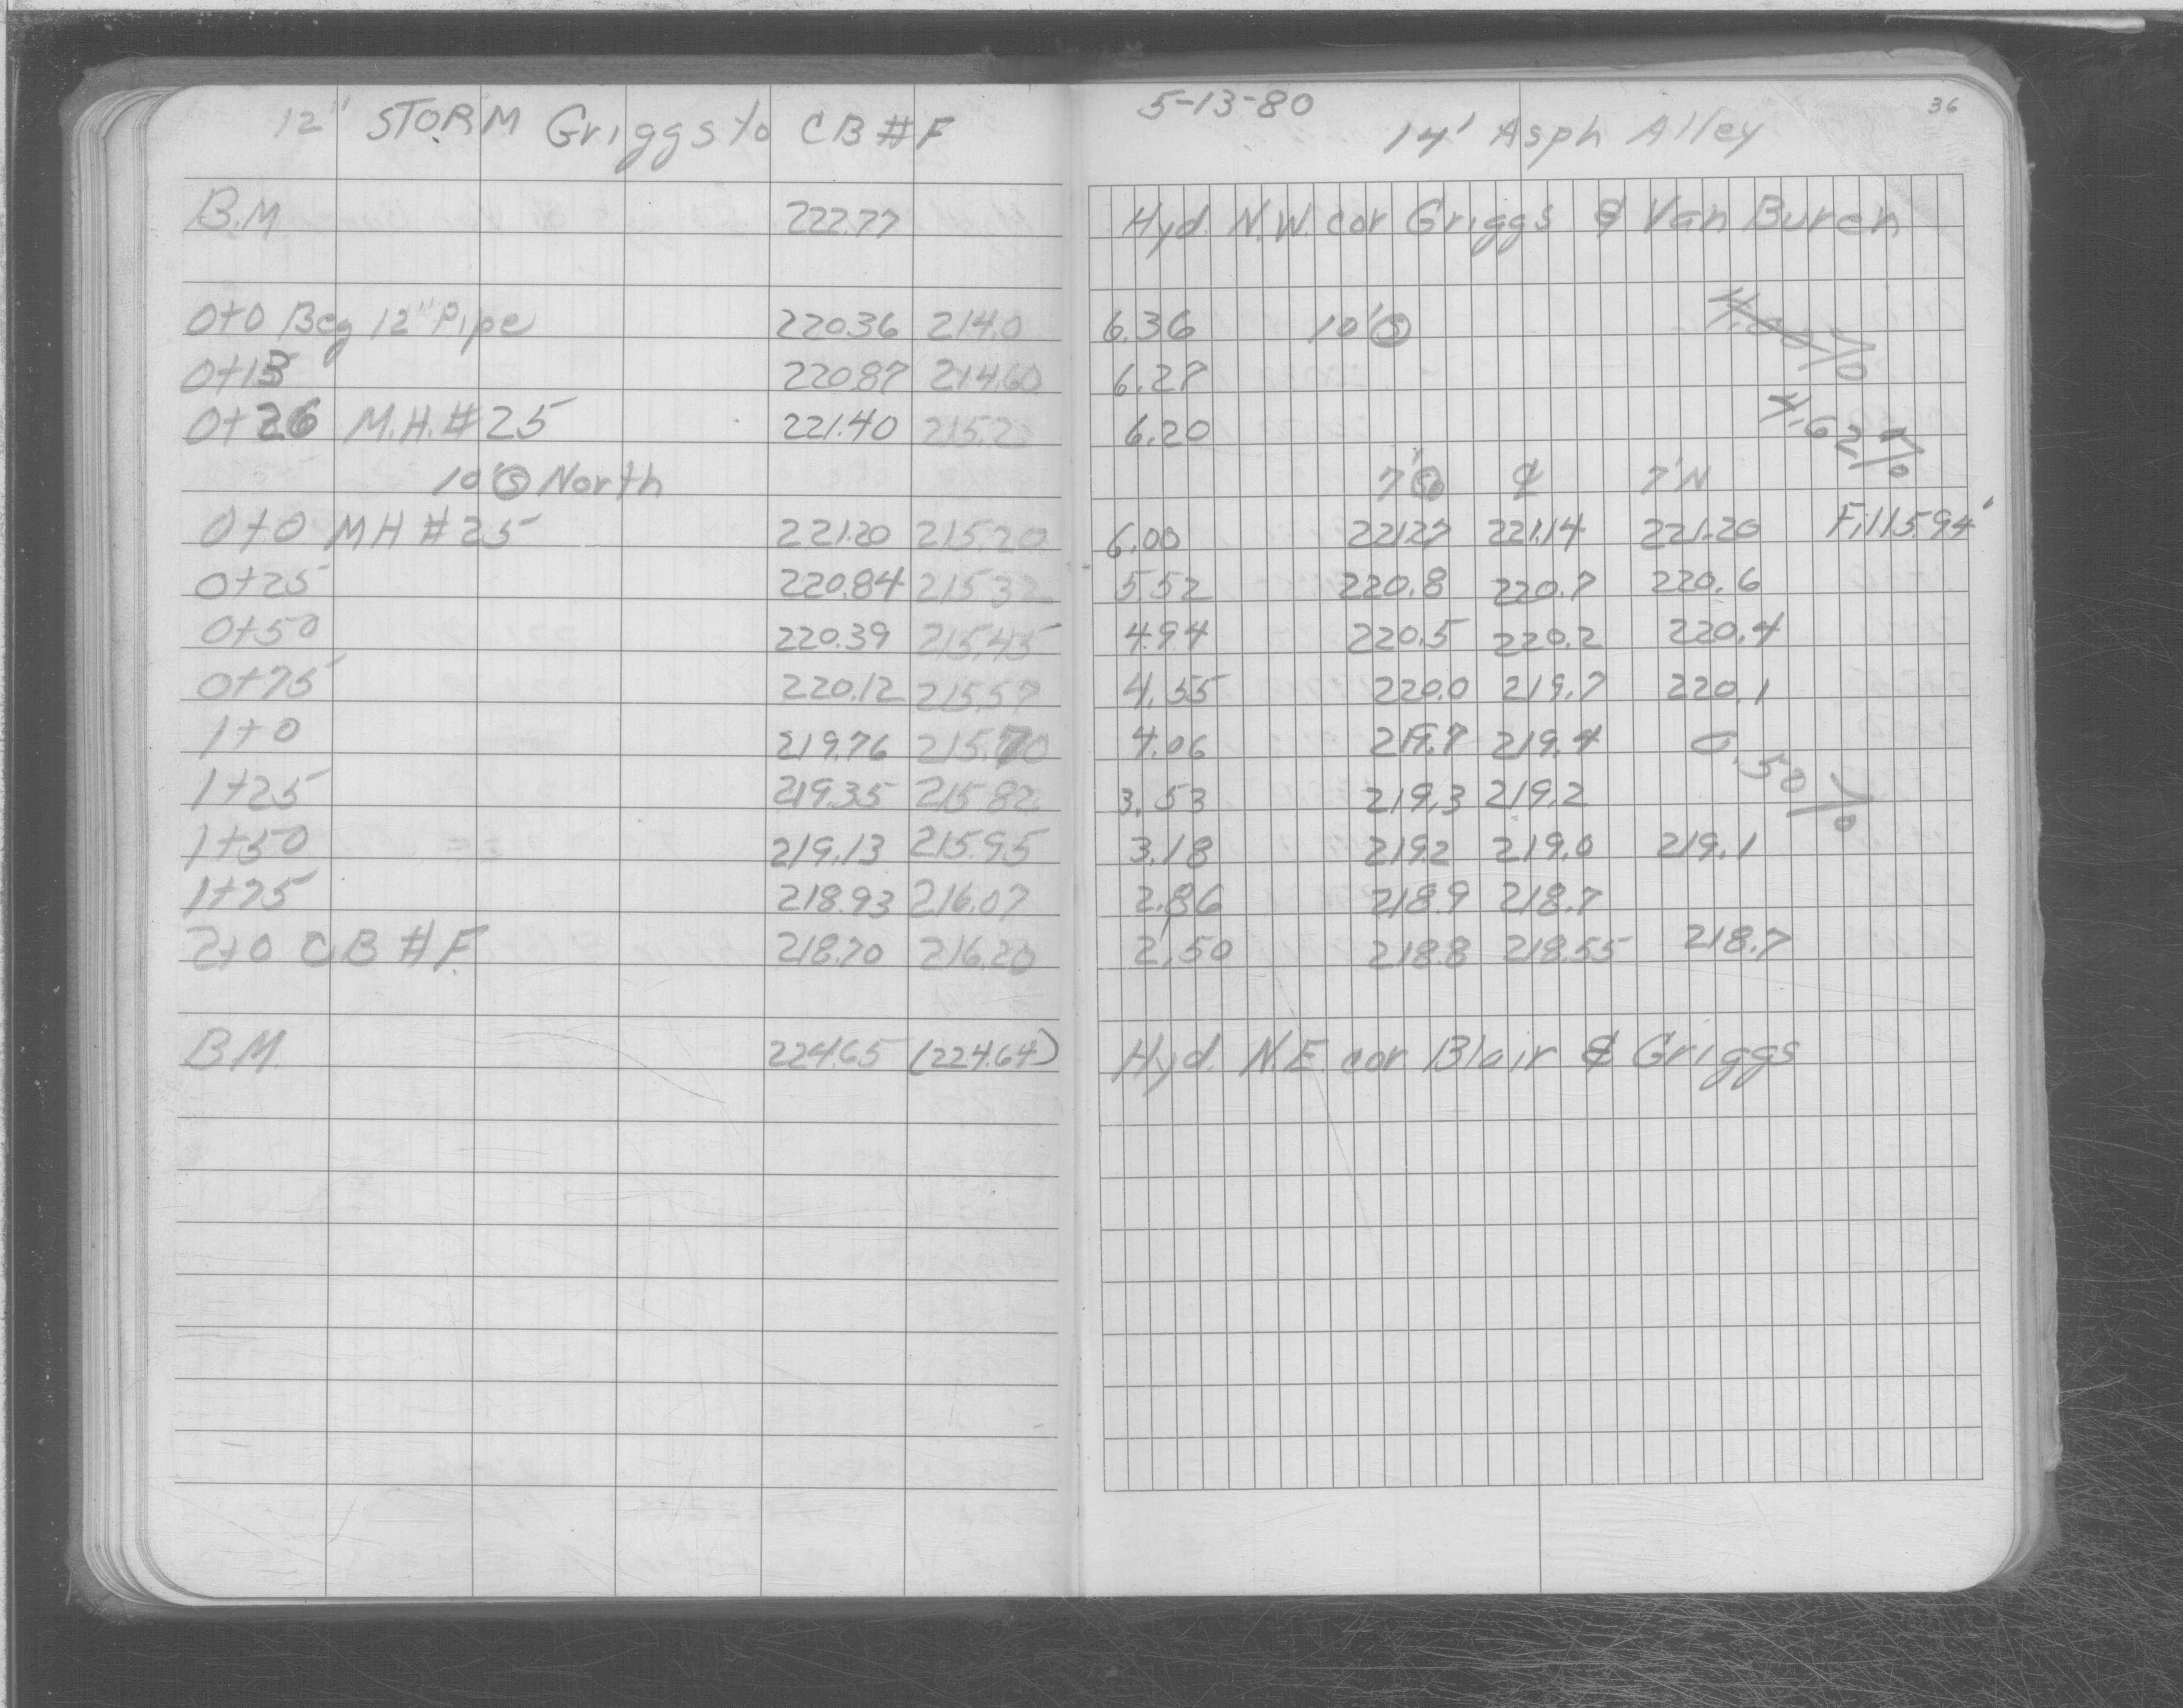 12" STORM Griggs to CB #F
B.M. 222.77
0+0 Beg 12" Pipe 220.36 214.0
0+13 220.87 214.60
0+26 M.H. #25 221.40 215.2
10' Ⓢ North
0+0 MH #25 221.20 215.20
0+25 220.84 215.32
0+50 220.39 215.45
0+75 220.12 215.57
1+0 219.76 215.70
1+25 219.35 215.82
1+50 219.13 215.95
1+75 218.93 216.07
2+0 C.B #F 218.70 216.20
B.M. 224.65 (224.64)
5-13-80
36
14' Asph Alley
Hyd. N.W. cor Griggs & Van Buren
6.36 10' Ⓢ
6.27
6.20 4.62%
7' Ⓢ ℄ 7' N
6.00 221.27 221.14 221.20 F.115.94'
5.52 220.8 220.7 220.6
4.94 220.5 220.2 220.4
4.55 220.0 219.7 220.1
4.06 219.7 219.4 0.50%
3.53 219.3 219.2
3.18 219.2 219.0 219.1
2.86 218.9 218.7
2.50 218.8 218.55 218.7
Hyd. N.E. cor Blair & Griggs